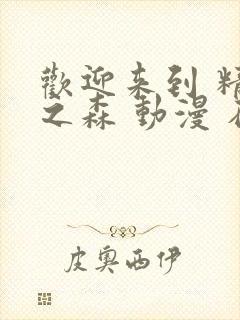 歡迎来到 精
之森 動漫
皮奧西伊